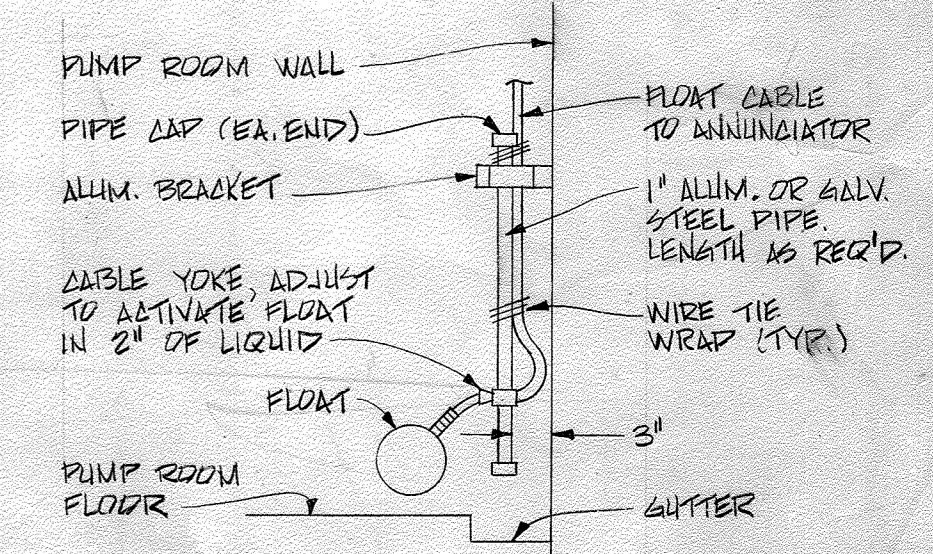 PUMP ROOM WALL
PIPE CAP (EA. END)
ALUM. BRACKET
CABLE YOKE, ADJUST
TO ACTIVATE FLOAT
IN 2" OF LIQUID
FLOAT
PUMP ROOM
FLOOR
FLOAT CABLE
TO ANNUNCIATOR
1" ALUM. OR GALV.
STEEL PIPE.
LENGTH AS REQ'D.
WIRE TIE
WRAP (TYP.)
3"
GUTTER